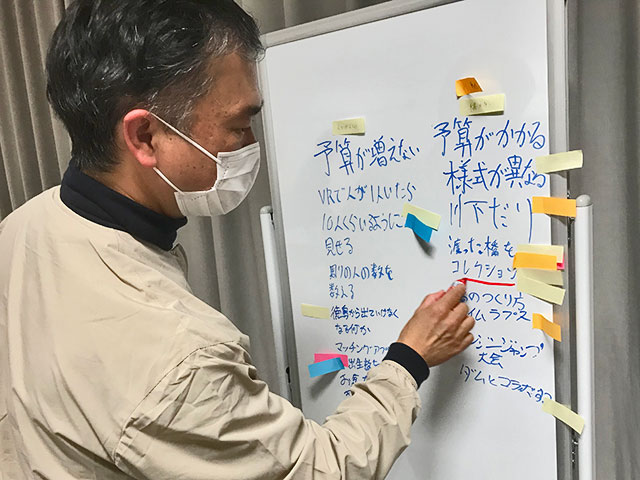 予算が増えない
VRで人が1人いたら
10人くらいるように
見せる
周りの人の数を
数える
徳島から出ていけなく
なる何か
マッチングアプ
出生数を
予算がかかる
様式が異なる
川下だり
渡った橋を
コレクション
のつくり方
イムラプス
ジージャンプ
大会
ダムとコラボ